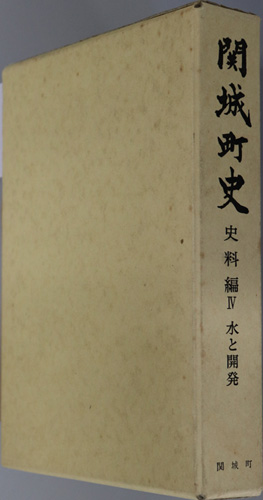 関城町史
史料編Ⅳ 水と開発
関城町